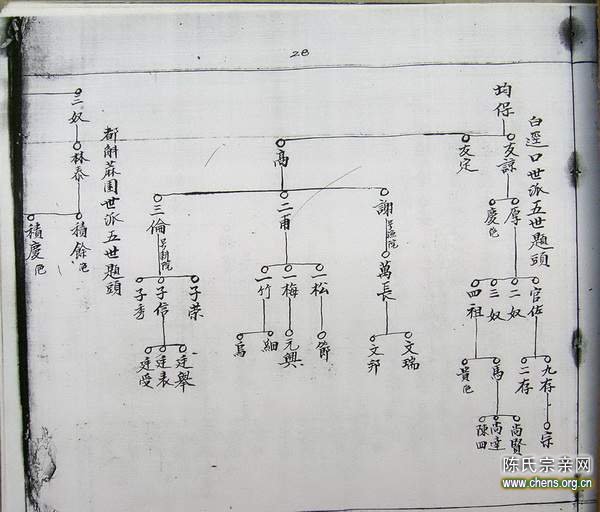 28
白逕口世派五世題頭
均保
友諒
友定
高
厚
慶
官佐
二奴
三奴
四祖
九存
二存
馬
貴
宗
尚賢
尚達
陳四
謝
二甫
三倫
萬長
文瑞
文邦
一松
一梅
一竹
元興
細
烏
子荣
子信
子秀
廷舉
廷表
廷受
都斛蔴園世派五世題頭
三奴
林泰
積餘
積慶
陈氏宗亲网
www.chens.org.cn